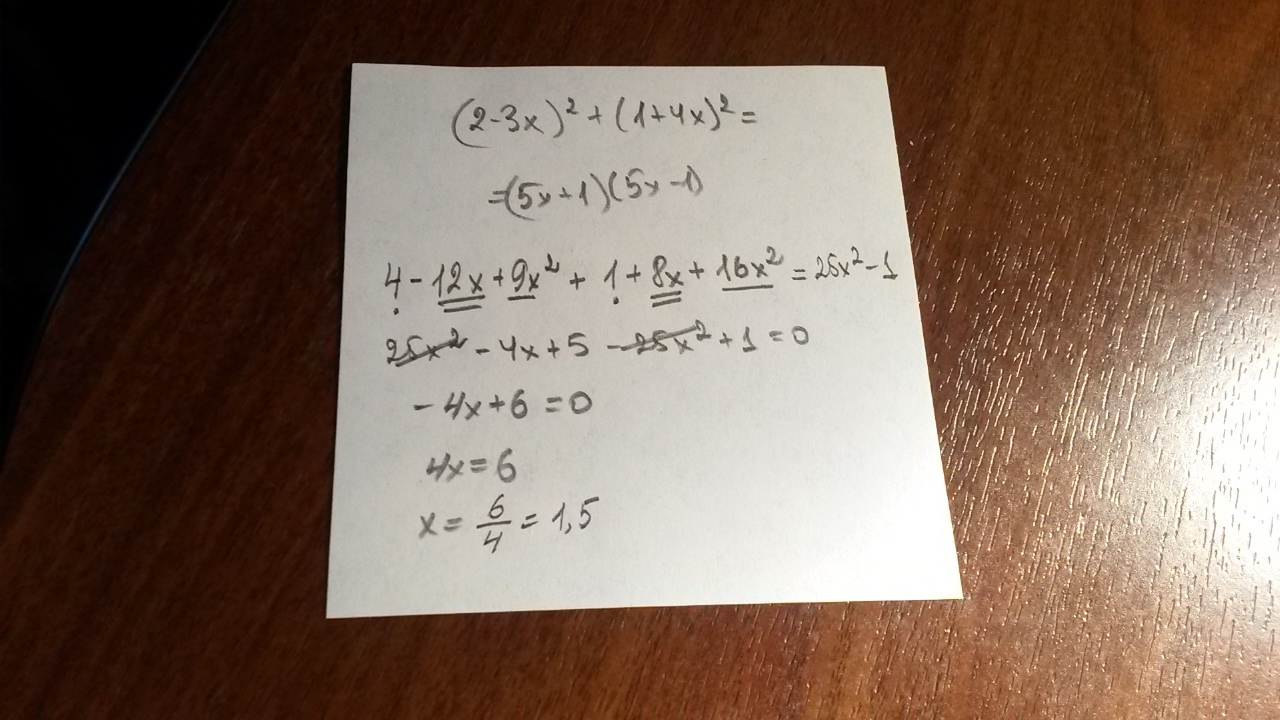 (2-3x)² + (1+4x)² =
=(5x+1)(5x-1)
4 - 12x + 9x² + 1 + 8x + 16x² = 25x² - 1
25x² - 4x + 5 - 25x² + 1 = 0
- 4x + 6 = 0
4x = 6
x = 6/4 = 1,5